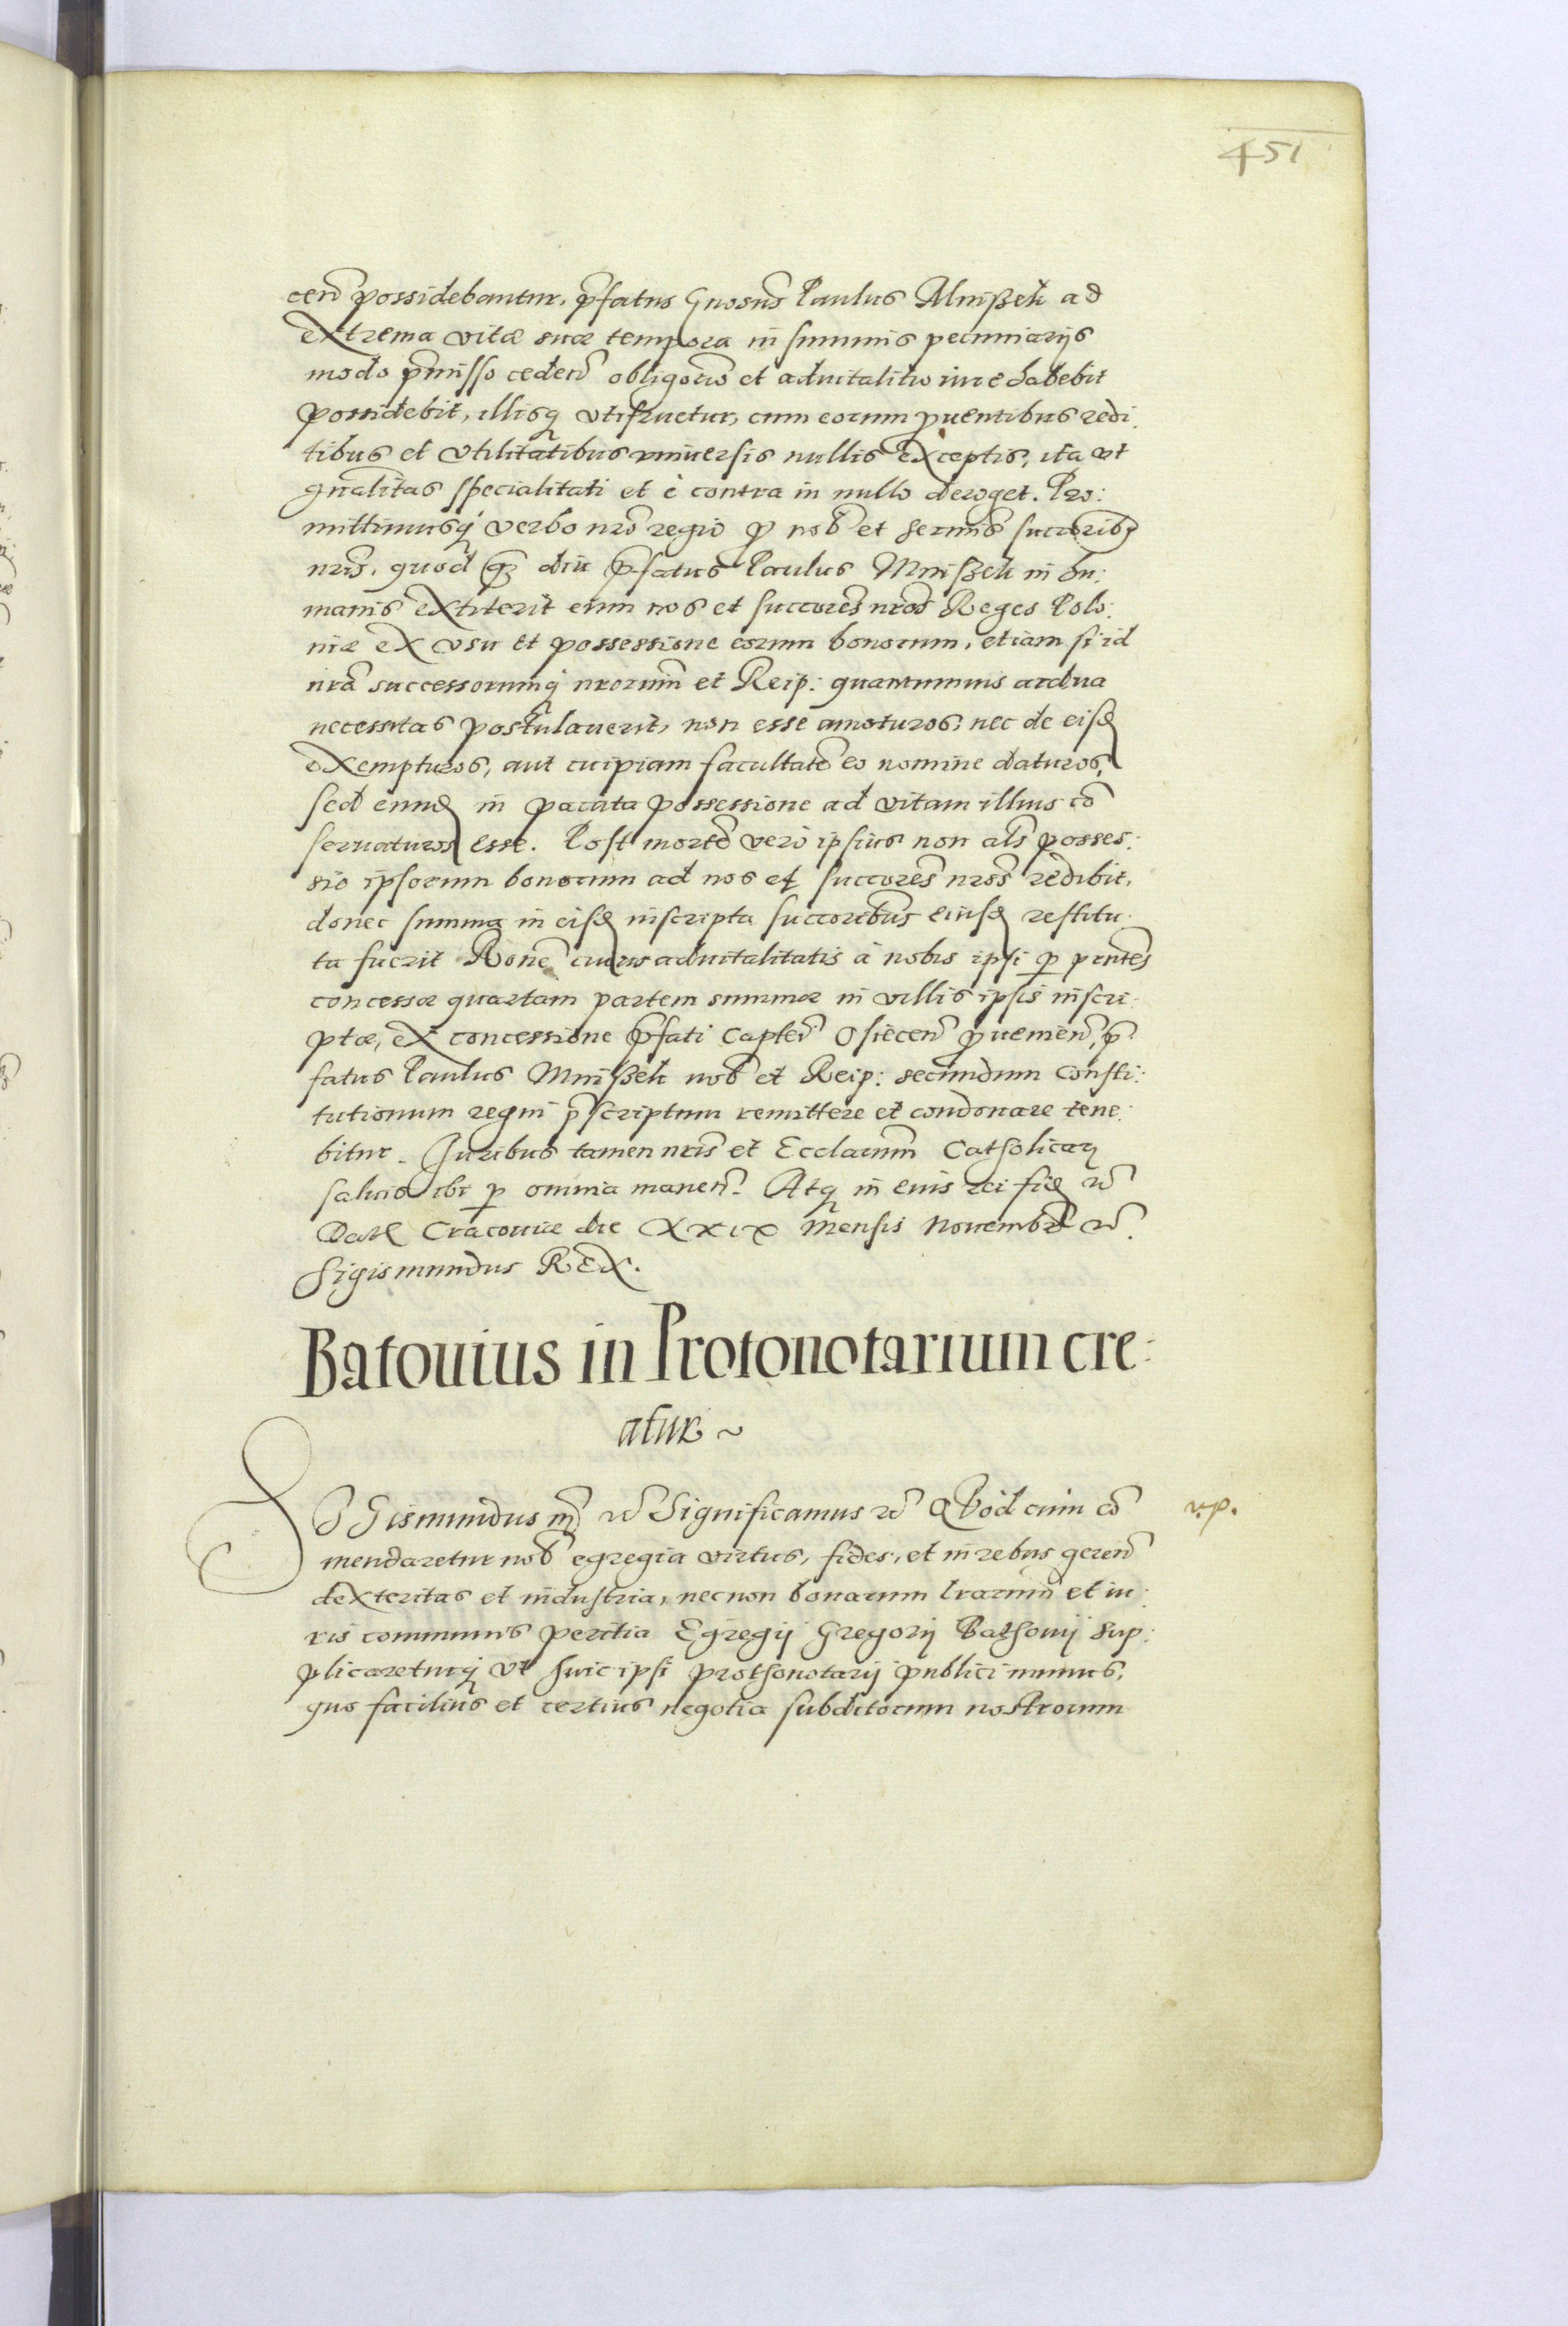 451
ceñ possidebantur, p̃fatus Gnosus̃ Paulus Mnißek ad
extrema vitæ suæ tempora in summis pecuniarijs
modo p̃misso cedeñ obligatorio et aduitalitio iure habebit
possidebit, illisq́ utifruetur, cum eorum ꝓuentibus redi:
tibus et vtilitatibus vniuersis nullis exceptis, ita vt
gnãlitas specialitati et è contra in nullo deroget. Pro:
mittimusq́ verbo nrõ regio ꝓ nob̃ et sermis̃ succorib₉
nris̃, quod qʒ diu p̃fatus Paulus Mnißek in hu:
manis extiterit eum nos et succores̃ nros̃ Reges Polo:
niæ ex vsu et possessione eorum bonorum, etiam si id
nrã successorumq́ nrorum̃ et Reip: quantumuis ardua
necessitas postulauerit, non esse amoturos, nec de eisd
exempturos, aut cuipiam facultatẽ eo nomine daturos,
sed eund in pacata possessione ad vitam illius cõ
seruaturos esse. Post mortẽ verò ipsius non als̃ posses:
sio ipsorum bonorum ad nos et succores̃ nros̃ redibit,
donec summa in eisd inscripta succoribus̃ eiusd restitu:
ta fuerit Ronẽ cuius aduitalitatis à nobis ipsi ꝑ pntes̃
concessæ quartam partem summæ in villis ipsis inscri:
ptæ, ex concessione p̃fati Capteĩ Osiecen̄ ꝓuenien̄, p̃
fatus Paulus Mnißek nob̃ et Reip: secundum Consti:
tutionum regni p̃scriptum remittere et condonare tene:
bitur. Juribus tamen nris̃ et Ecclarum̃ Catholicaꝝ
saluis ibi ꝑ omnia manen̄. Atq́ in eius rei fid etc̃
Dat Cracouiæ die XXIX mensis Nouembr̃ etc̃.
Sigismundus Rex.
Batouius in Protonotarium cre:
atur ~
SIGismundus 3 etc̃ Significamus etc̃ Quod cum cõ
r.p.
mendaretur nob̃ egregia virtus, fides, et in rebus geren̄
dexteritas et industria, necnon bonarum lrarum̃ et iu:
ris communis peritia Egregij Gregorij Bathouij sup:
plicareturq́ vt huic ipsi prothonotarij publici munus,
quo facilius et certius negotia subditorum nostrorum